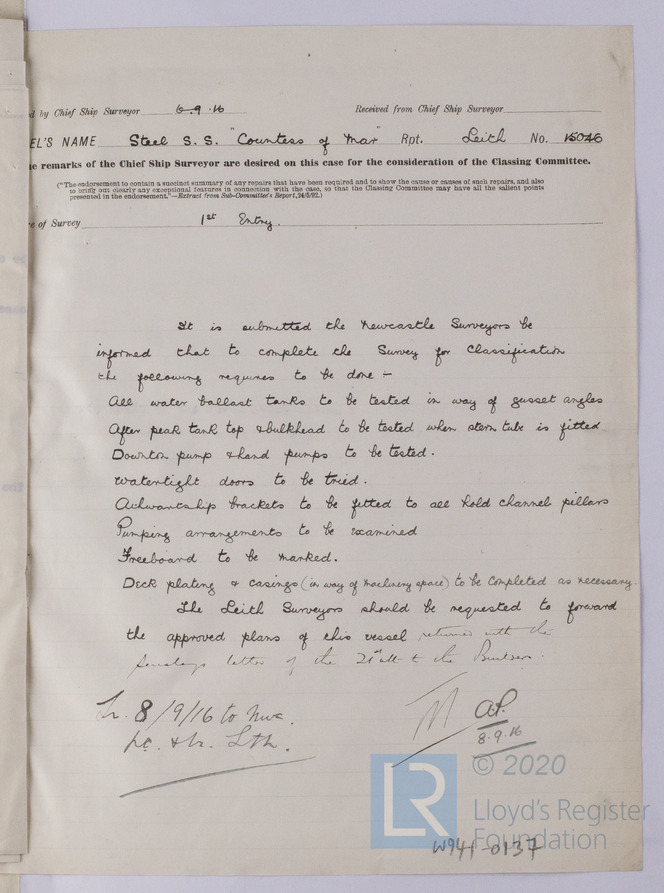 d by Chief Ship Surveyor 6-9-16 Received from Chief Ship Surveyor
EL'S NAME Steel S.S. "Countess of Mar" Rpt. Leith No. 15046
e remarks of the Chief Ship Surveyor are desired on this case for the consideration of the Classing Committee.
("The endorsement to contain a succinct summary of any repairs that have been required and to show the cause or causes of such repairs, and also
to bring out clearly any exceptional features in connection with the case, so that the Classing Committee may have all the salient points
presented in the endorsement."—Extract from Sub-Committee's Report, 24/5/92.)
e of Survey 1st Entry.
It is submitted the Newcastle Surveyors be
informed that to complete the Survey for Classification
the following requires to be done :-
All water ballast tanks to be tested in way of gusset angles
After peak tank top & bulkhead to be tested when stern tube is fitted
Downton pump & hand pumps to be tested.
Watertight doors to be tried.
Athwartship brackets to be fitted to all hold channel pillars
Pumping arrangements to be examined
Freeboard to be marked.
Deck plating & casings (in way of machinery space) to be completed as necessary.
The Leith Surveyors should be requested to forward
the approved plans of this vessel returned with the
letter of the 21st ult to the Builders.
Lr. 8/9/16 to Nwc.
pc. & lr. Lth.
AP.
8.9.16
© 2020
LR
Lloyd's Register
Foundation
W941-0137